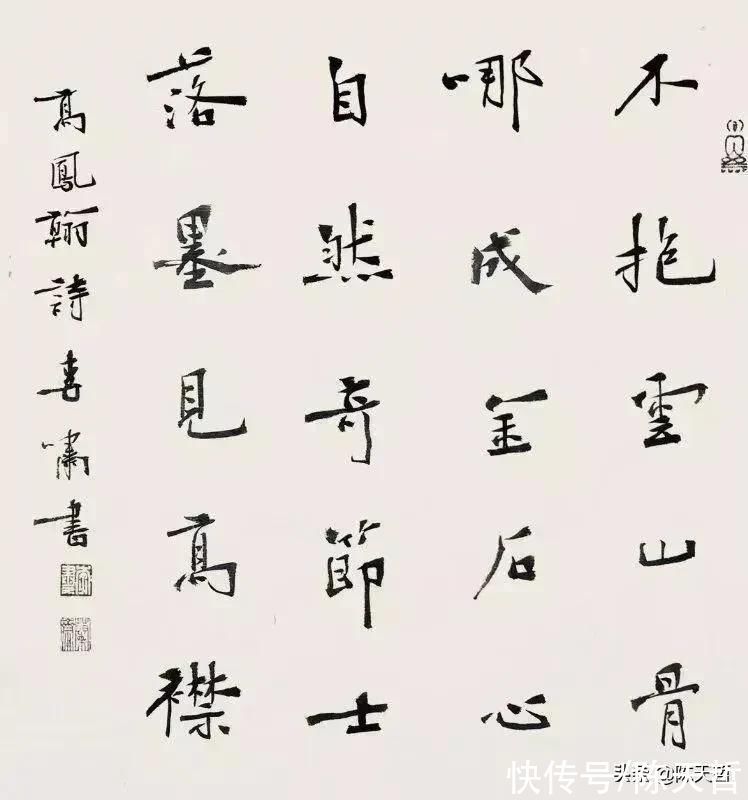 不抱雲山骨
哪成金石心
自然奇節士
落墨見高襟
高鳳翰詩 李嘯書
快传号/陈天哲
头条 @陈天哲